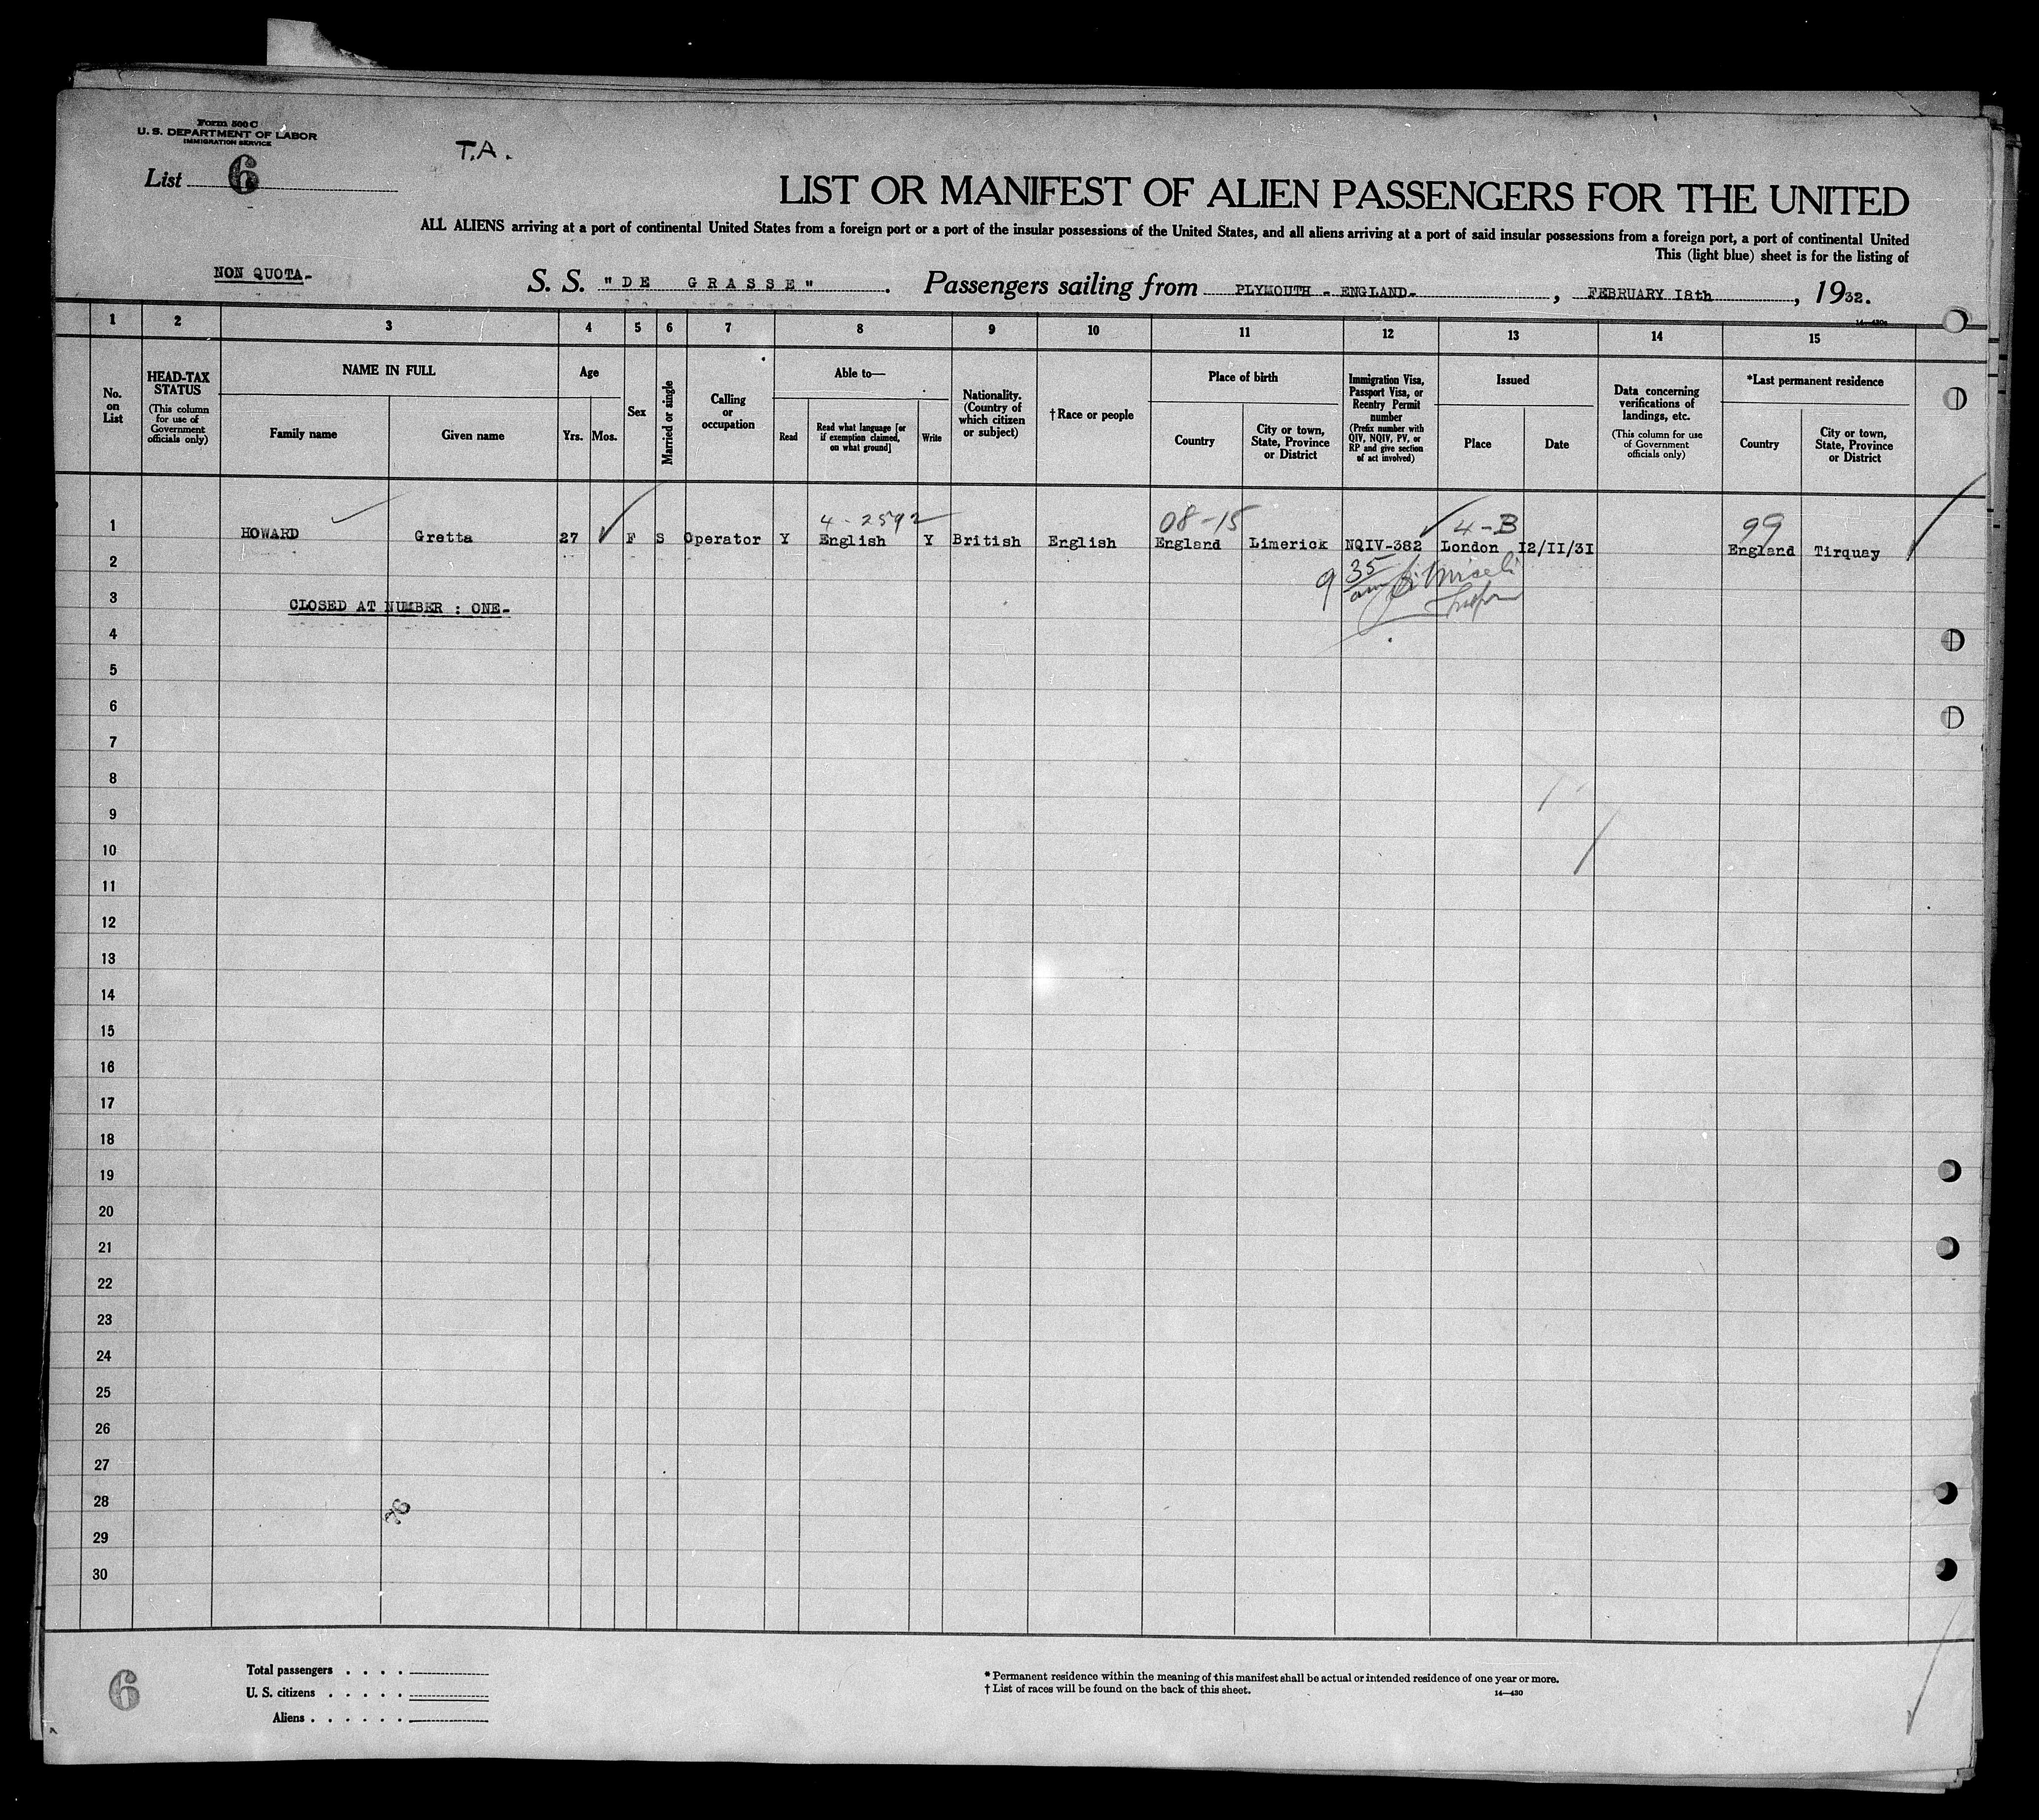 Form 500 C
U. S. DEPARTMENT OF LABOR
IMMIGRATION SERVICE
T.A.
List 6
LIST OR MANIFEST OF ALIEN PASSENGERS FOR THE UNITED
ALL ALIENS arriving at a port of continental United States from a foreign port or a port of the insular possessions of the United States, and all aliens arriving at a port of said insular possessions from a foreign port, a port of continental United
This (light blue) sheet is for the listing of
NON QUOTA-
S. S. "DE GRASSE". Passengers sailing from PLYMOUTH - ENGLAND-, FEBRUARY I8th, 1932.
14—430a
1 2 3 4 5 6 7 8 9 10 11 12 13 14 15
No. on List
HEAD-TAX STATUS
(This column for use of Government officials only)
NAME IN FULL
Family name
Given name
Age
Yrs. Mos.
Sex
Married or single
Calling or occupation
Able to—
Read
Read what language [or if exemption claimed, on what ground]
Write
Nationality. (Country of which citizen or subject)
† Race or people
Place of birth
Country
City or town, State, Province or District
Immigration Visa, Passport Visa, or Reentry Permit number
(Prefix number with QIV, NQIV, PV, or RP and give section of act involved)
Issued
Place
Date
Data concerning verifications of landings, etc.
(This column for use of Government officials only)
*Last permanent residence
Country
City or town, State, Province or District
4-2592 08-15 4-B 99
1 HOWARD Gretta 27 F S Operator Y English Y British English England Limerick NQIV-382 London I2/II/3I England Tirquay
2
9 35 am
3 CLOSED AT NUMBER : ONE-
4
5
6
7
8
9
10
11
12
13
14
15
16
17
18
19
20
21
22
23
24
25
26
27
28
29
30
6
Total passengers . . . .
U. S. citizens . . . . .
Aliens . . . . . .
* Permanent residence within the meaning of this manifest shall be actual or intended residence of one year or more.
† List of races will be found on the back of this sheet.
14—430